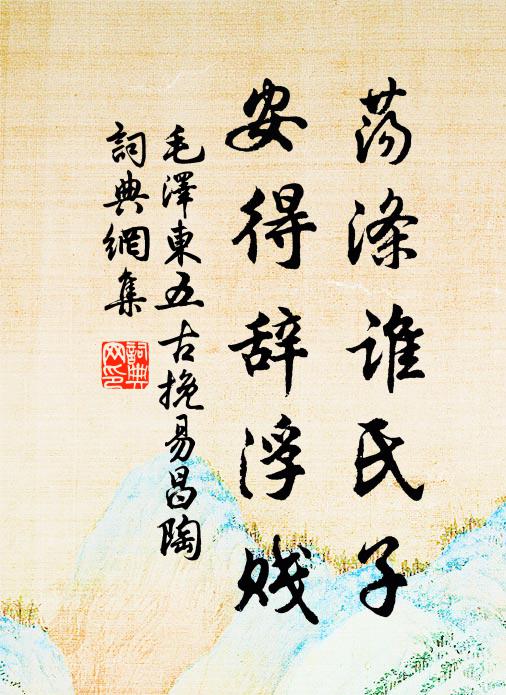 荡涤谁氏子
安得辞浮贱
毛澤東五古挽易昌陶
詞典網集
詞典
网印